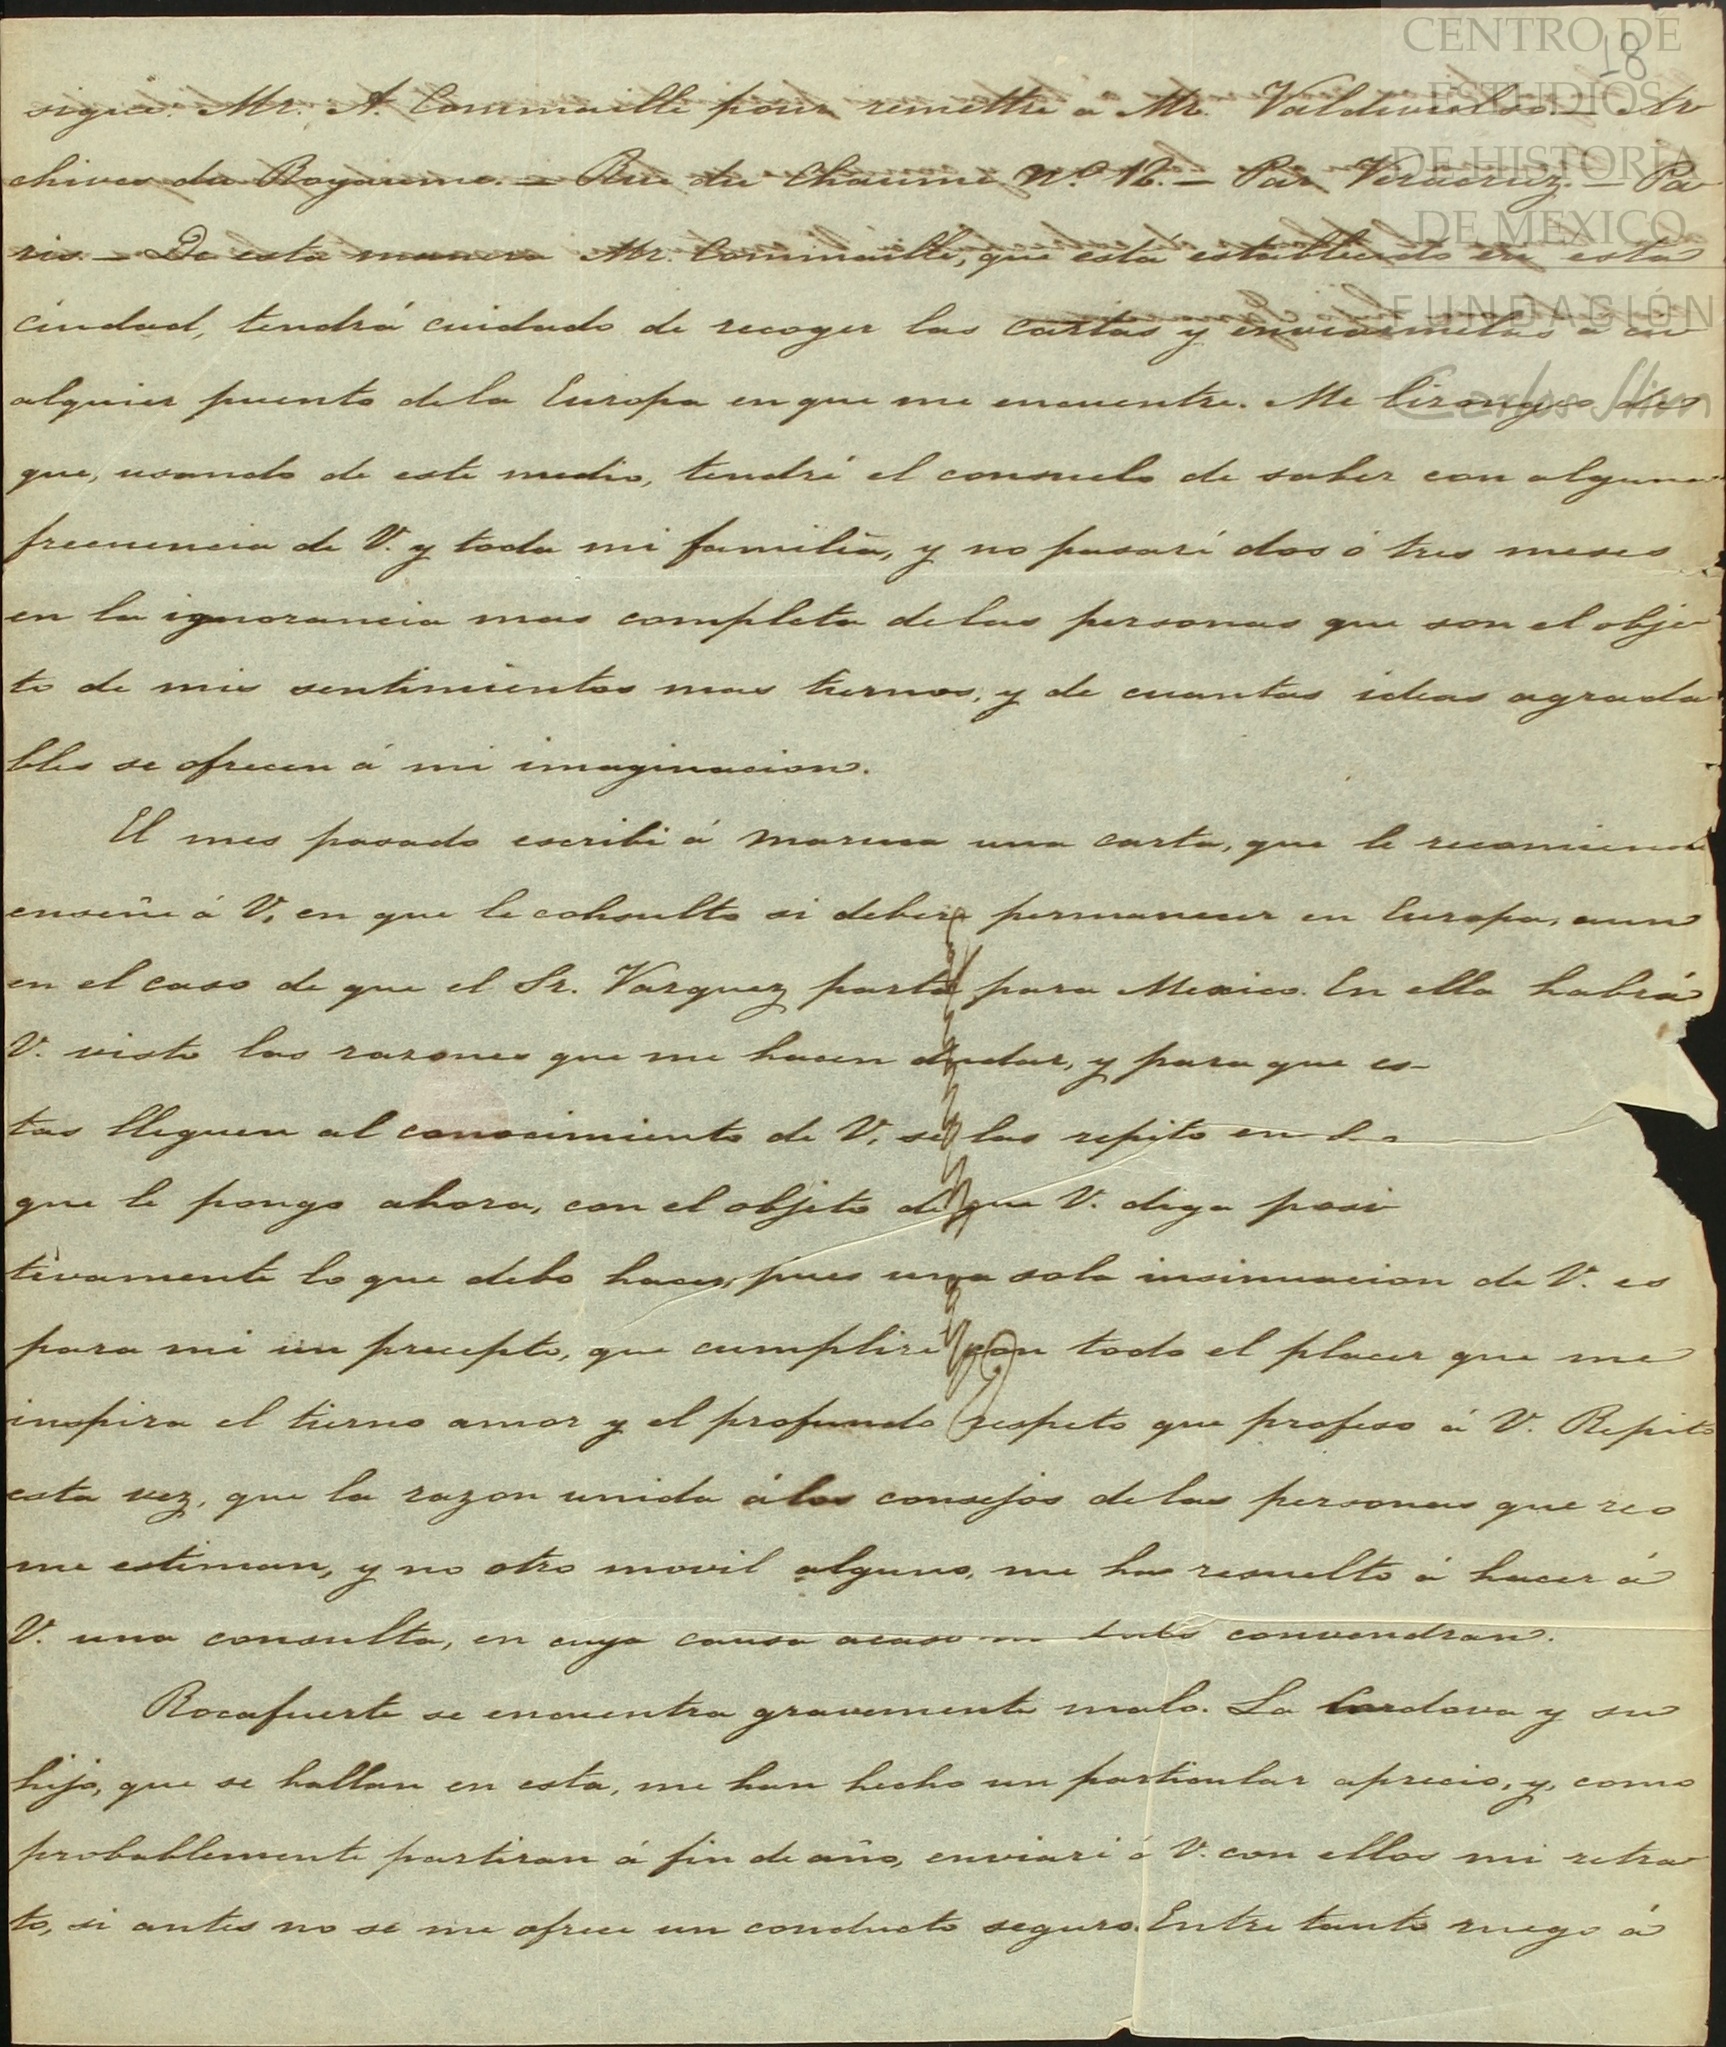 18
CENTRO DE
ESTUDIOS
DE HISTORIA
DE MEXICO
FUNDACIÓN
Carlos Slim
sigue. Mr. A. Commaille pour remettre á Mr. Valdivielso. — Ar
chives du Royaume. — Rue du Chaume Nº. 12. — Par Veracruz. — Pa
ris. — De esta manera Mr. Commaille, que está establecido en esta
ciudad, tendrá cuidado de recoger las cartas y enviarmelas á cu
alquier puento de la Europa en que me encuentre. Me lisongeo de
que, usando de este medio, tendré el consuelo de saber con alguna
frecuencia de V. y toda mi familia, y no pasaré dos ó tres meses
en la ignorancia mas completa de las personas que son el obje
to de mis sentimientos mas tiernos, y de cuantas ideas agrada
bles se ofrecen á mi imaginacion.
El mes pasado escribi á una carta, que le recomiendo
enseñe á V, en que le consulto si deberé permanecer en Europa, aun
en el caso de que el Sr. Vazquez parta para Mexico. En ella habrá
V. visto las razones que me hacen dudar, y para que es-
tas lleguen al conocimiento de V, se las repito en la
que le pongo ahora, con el objeto de que V. diga posi
tivamente lo que debo hacer, pues una sola insinuacion de V. es
para mi un precepto, que cumpliré con todo el placer que me
inspira el tierno amor y el profundo respeto que profeso á V. Repito
esta vez, que la razon unida á los consejos de las personas que
me estiman, y no otro movil alguno, me ha resuelto á hacer á
V. una consulta, en cuya causa acaso todos convendran.
Rocafuerte se encuentra gravemente malo. La Cordova y su
hijo, que se hallan en esta, me han hecho un particular aprecio, y, como
probablemente partiran á fin de año, enviaré á V. con ellos mi retra
to, si antes no se me ofrece un conducto seguro. Entre tanto ruego á